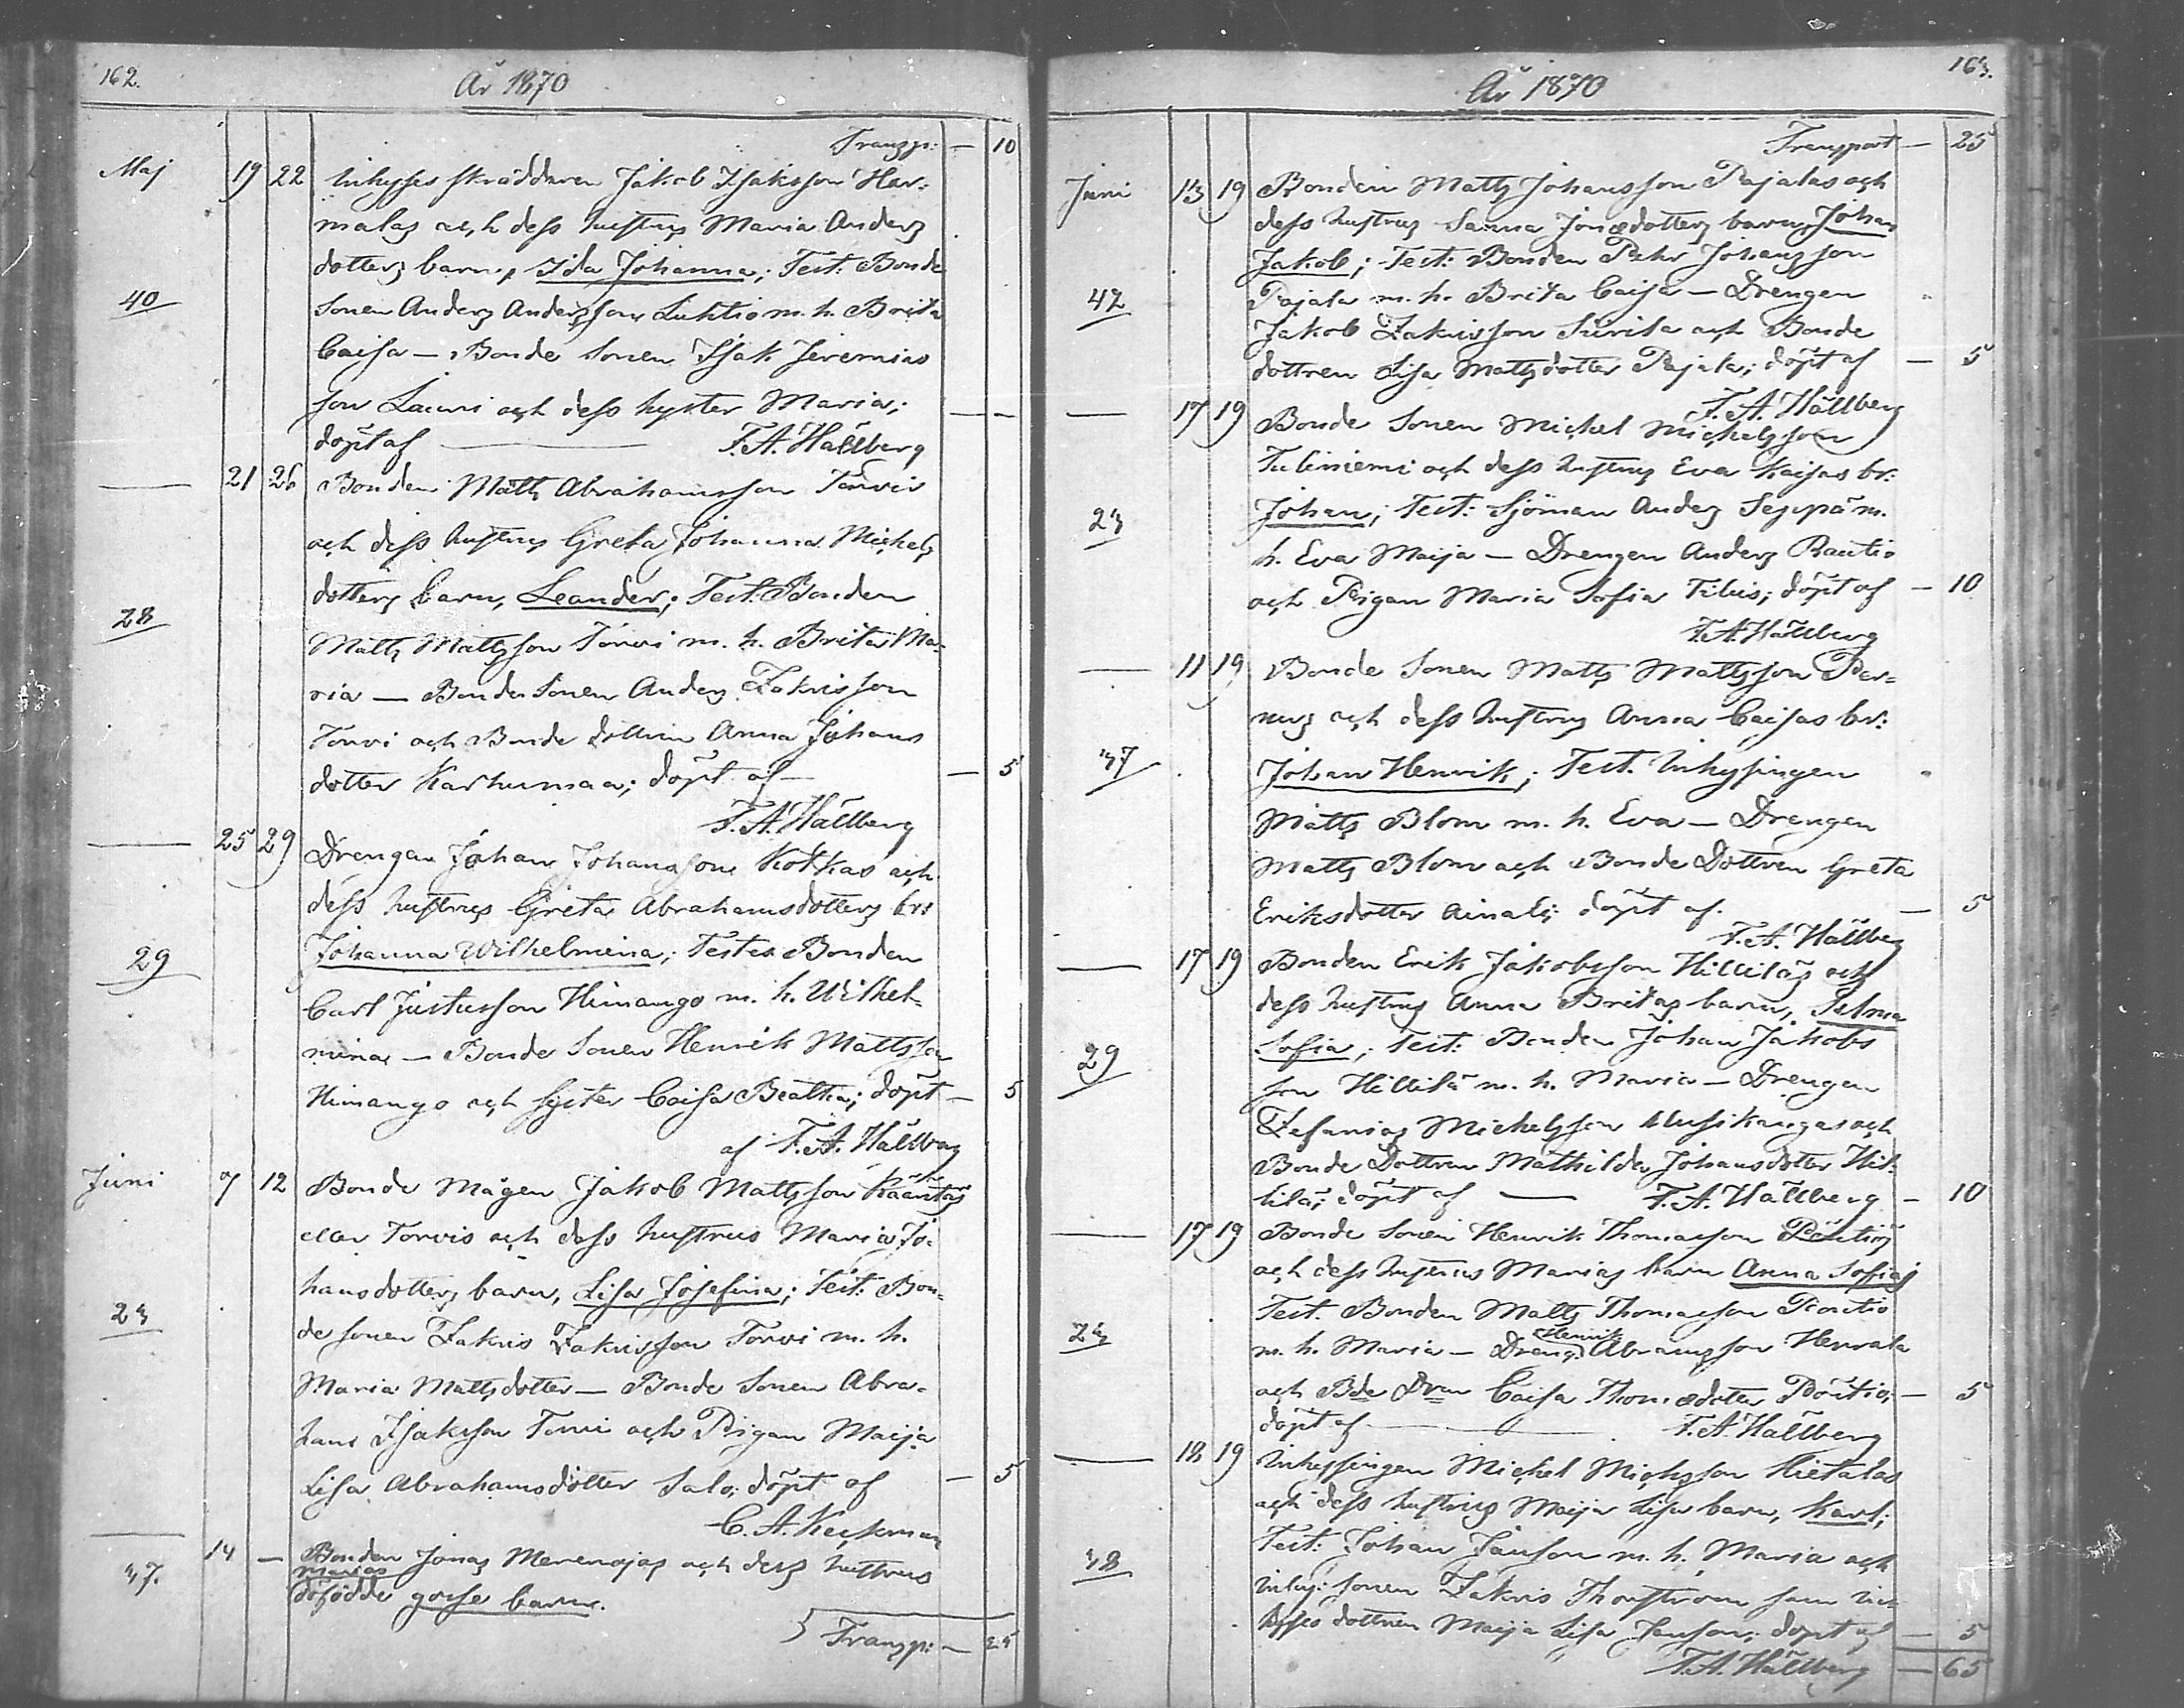 162.
År 1870
Transp: — 10
Maj 19 22 Inhyses skräddaren Jakob Isaksson Har-
malas och dess hustrus Maria Anders
dotters barn, Ida Johanna; Test: Bonde
40 sonen Anders Andersson Luhtio m. h. Brita
Caisa — Bonde sonen Isak Jeremias
son Lauri och dess syster Maria; — —
döpt af — F. A. Hällberg
— 21 26 Bonden Matts Abrahamsson Torvis
och dess hustrus Greta Johanna Michels
dotters barn, Leander; Test: Bonden
28 Matts Mattsson Torvi m. h. Brita Ma-
ria — Bonde Sonen Anders Zakrisson
Torvi och Bonde dottren Anna Johans
dotter Karhumaa; döpt af — — 5
F. A. Hällberg
— 25 29 Drengen Johan Johansson Kotkas och
dess hustrus Greta Abrahamsdotters br:
29 Johanna Wilhelmina; Testes Bonden
Carl Justusson Himango m. h. Wilhel-
mina — Bonde Sonen Henrik Mattsson
Himango och syster Caisa Beatha; döpt — 5
af F. A. Hällberg
Juni 7 12 Bonde Mågen Jakob Mattsson Kääntas
eller Torvis och dess hustrus Maria Jo-
hansdotters barn, Lisa Josefina; Test: Bon-
23 de sonen Zakris Zakrisson Torvi m. h.
Maria Mattsdotter — Bonde Sonen Abra-
ham Isaksson Torvi och Pigan Maija
Lisa Abrahamsdotter Salo; döpt af — 5
C. A. Keckman
— 14 — Bonden Jonas Merenojas och dess hustrus
37. Marias
dödfödde gosse barn.
Transp: — 25
163.
År 1870
Transport — 25
Juni 13 19 Bonden Matts Johansson Pajalas och
dess hustrus Sanna Jonædotters barn, Johan
Jakob; Test: Bonden Pehr Johansson
42 Pajala m. h. Brita Caisa — Drengen
Jakob Zakrisson och Bonde
dottren Lisa Mattsdotter Pajala; döpt af — 5
F. A. Hällberg
— 17 19 Bonde Sonen Michel Michelsson
Tuliniemi och dess hustrus Eva Kaisas br:
23 Johan; Test: Sjöman Anders Seppä m.
h. Eva Maija — Drengen Anders Rautio
och Pigan Maria Sofia Tilus; döpt af — 10
F. A. Hällberg
— 11 19 Bonde Sonen Matts Mattsson Per-
nus och dess hustrus Anna Caisas br:
37 Johan Henrik; Test. Inhysingen
Matts Blom m. h. Eva — Drengen
Matts Blom och Bonde Dottren Greta
Eriksdotter Ainali; döpt af. — 5
F. A. Hällberg
— 17 19 Bonden Erik Jakobsson Hilliläs och
dess hustrus Anna Britas barn, Selma
29 Sofia; Test: Bonden Johan Jakobs
son Hillilä m. h. Maria — Drengen
Zefanias Michelsson Musikangas och
Bonde Dottren Mathilda Johansdotter Hil-
lilä; döpt af — F. A. Hällberg — 10
— 17 19 Bonde Sonen Henrik Thomasson Pöutiös
och dess hustrus Marias barn Anna Sofia;
Test. Bonden Matts Thomasson Pöutiö
23 Henrik
m. h. Maria — Dreng. Abramsson Herrala
och Bde Dren Caisa Thomædotter Pöutiö; — 5
döpt af — F. A. Hällberg
— 18 19 Inhysingen Michel Michsson Hietalas
och dess hustrus Maija Lisa barn, Karl;
38 Test: Johan Janson m. h. Maria och
Inhy: sonen Zakris Thorstrom sam In-
hyses dottren Maija Lisa Janson; döpt af — 5
F. A. Hällberg — 65